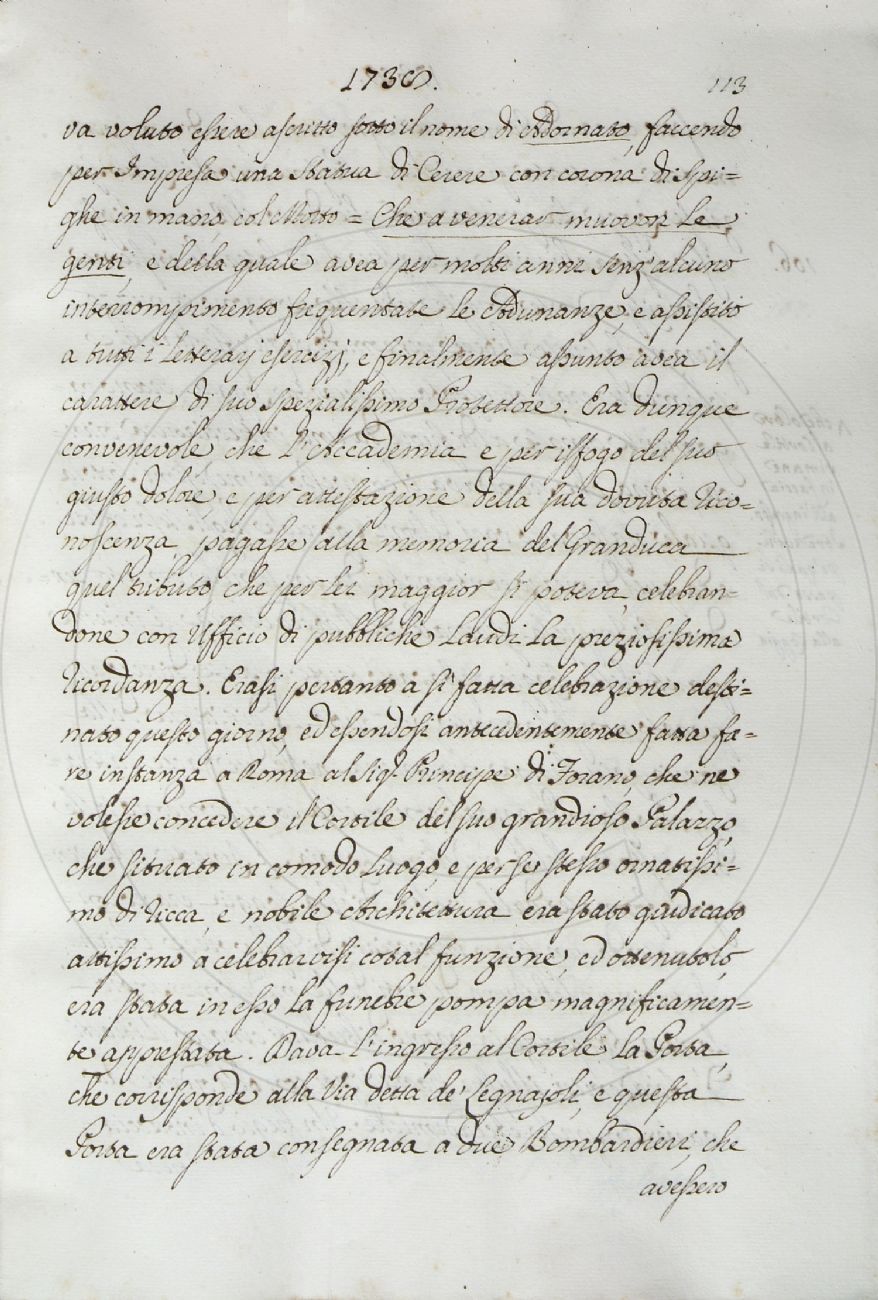 1738.
113
va voluto essere ascritto sotto il nome di Adornato, faccendo
per Impresa una Statua di Cerere con corona di Spi=
ghe in mano col Motto = Che a venerar muovon le
genti, e della quale avea per molti anni senz'alcuno
interrompimento frequentate le Adunanze, e assistito
a tutti i Letterarj esercizj, e finalmente assunto avea il
carattere di suo spezialissimo Protettore. Era dunque
convenevole che l'Accademia e per isfogo del suo
giusto dolore, e per attestazione della sua dovuta rico=
noscenza, pagasse alla memoria del Granduca
quel tributo, che per lei maggior si poteva, celebran=
done con Ufficio di pubbliche Laudi la preziosissima
ricordanza. Erasi pertanto a sì fatta celebrazione desti=
nato questo giorno, ed essendosi antecedentemente fatta fa=
re instanza a Roma al Sig.r Principe di Forano, che ne
volesse concedere il Cortile del suo grandioso Palazzo,
che situato in comodo Luogo, e per se stesso ornatissi=
mo di ricca, e nobile Architettura era stato giudicato
attissimo a celebrarvisi cotal funzione, ed ottenutolo,
era stata in esso la funebre pompa magnificamen=
te appressata. Dava l'ingresso al Cortile la Porta,
che corrisponde alla Via detta de' Legnajoli, e questa
Porta era stata consegnata a due Bombardieri, che
avessero